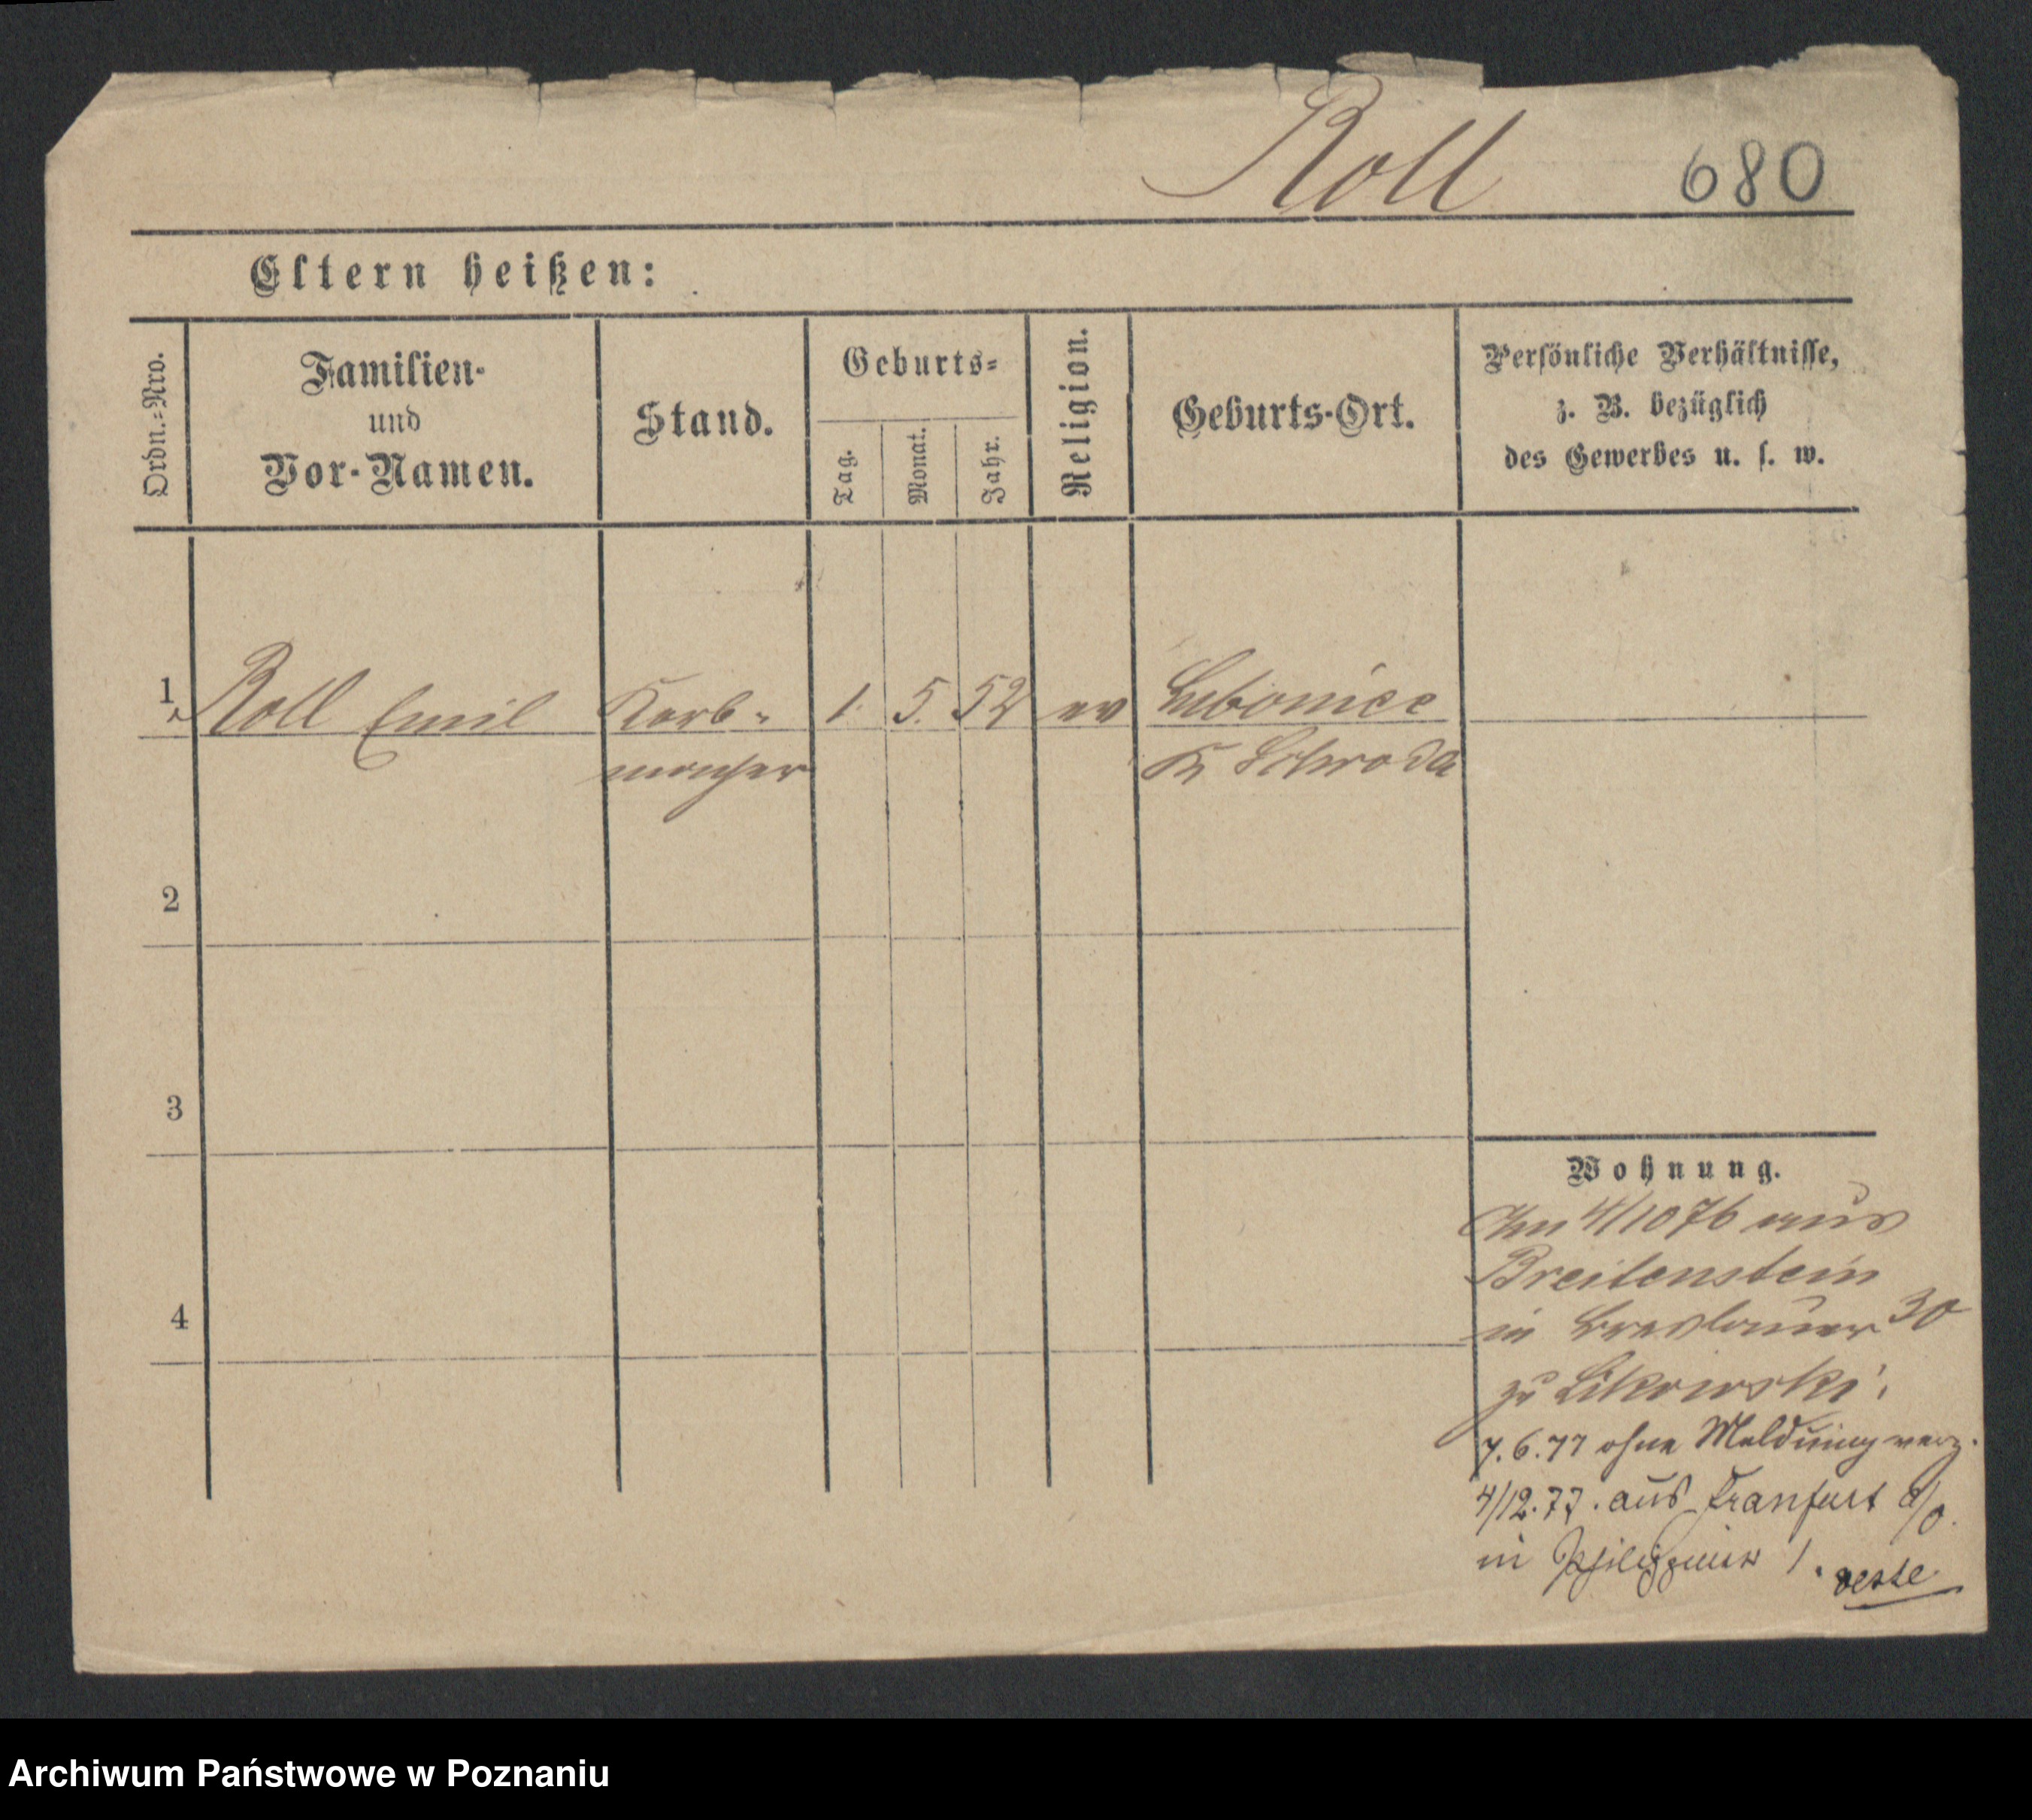 Roll 680
Eltern heißen:
Ordn.=Nro.
Familien-
und
Vor-Namen.
Stand.
Geburts=
Tag.
Monat.
Jahr.
Religion.
Geburts-Ort.
Persönliche Verhältnisse,
z. B. bezüglich
des Gewerbes u. s. w.
1 Roll Emil Korb- 1. 5. 52 ev
macher K Schroda
2
3
4
Wohnung.
Am 4/10 76 aus
Breitenstein
in Breslauer 30
zu Likowski.
7.6.77 ohne Meldung verz.
4/12.77. aus Franfurt a/o.
in 1.
Archiwum Państwowe w Poznaniu